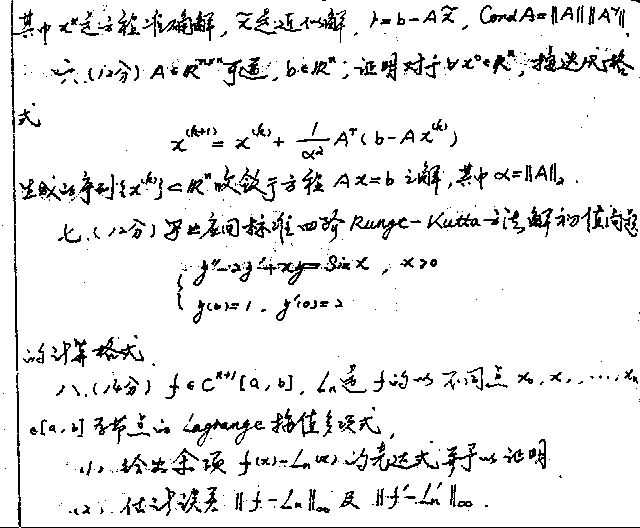 其中 x* 是方程准确解, x̃ 是近似解, r=b-Ax̃, Cond A=‖A‖‖A⁻¹‖.
六.(12分) A∈Rⁿˣⁿ可逆, b∈Rⁿ, 证明对于∀x⁰∈Rⁿ, 迭代格
式
x⁽ᵏ⁺¹⁾ = x⁽ᵏ⁾ + 1/α² Aᵀ(b-Ax⁽ᵏ⁾)
生成的序列{x⁽ᵏ⁾}⊂Rⁿ收敛于方程 Ax=b 之解, 其中 α=‖A‖₂.
七.(12分) 写出应用标准四阶 Runge-Kutta 方法解初值问题
{ y''-2y'+xy=Sin x, x>0
y(0)=1, y'(0)=2
的计算格式.
八.(14分) f∈Cⁿ⁺¹[a,b], Lₙ是f的以不同点 x₀,x₁,…,xₙ
∈[a,b]为节点的 Lagrange 插值多项式,
(1) 给出余项 f(x)-Lₙ(x) 的表达式并予以证明
(2) 估计误差 ‖f-Lₙ‖∞ 及 ‖f'-Lₙ'‖∞.